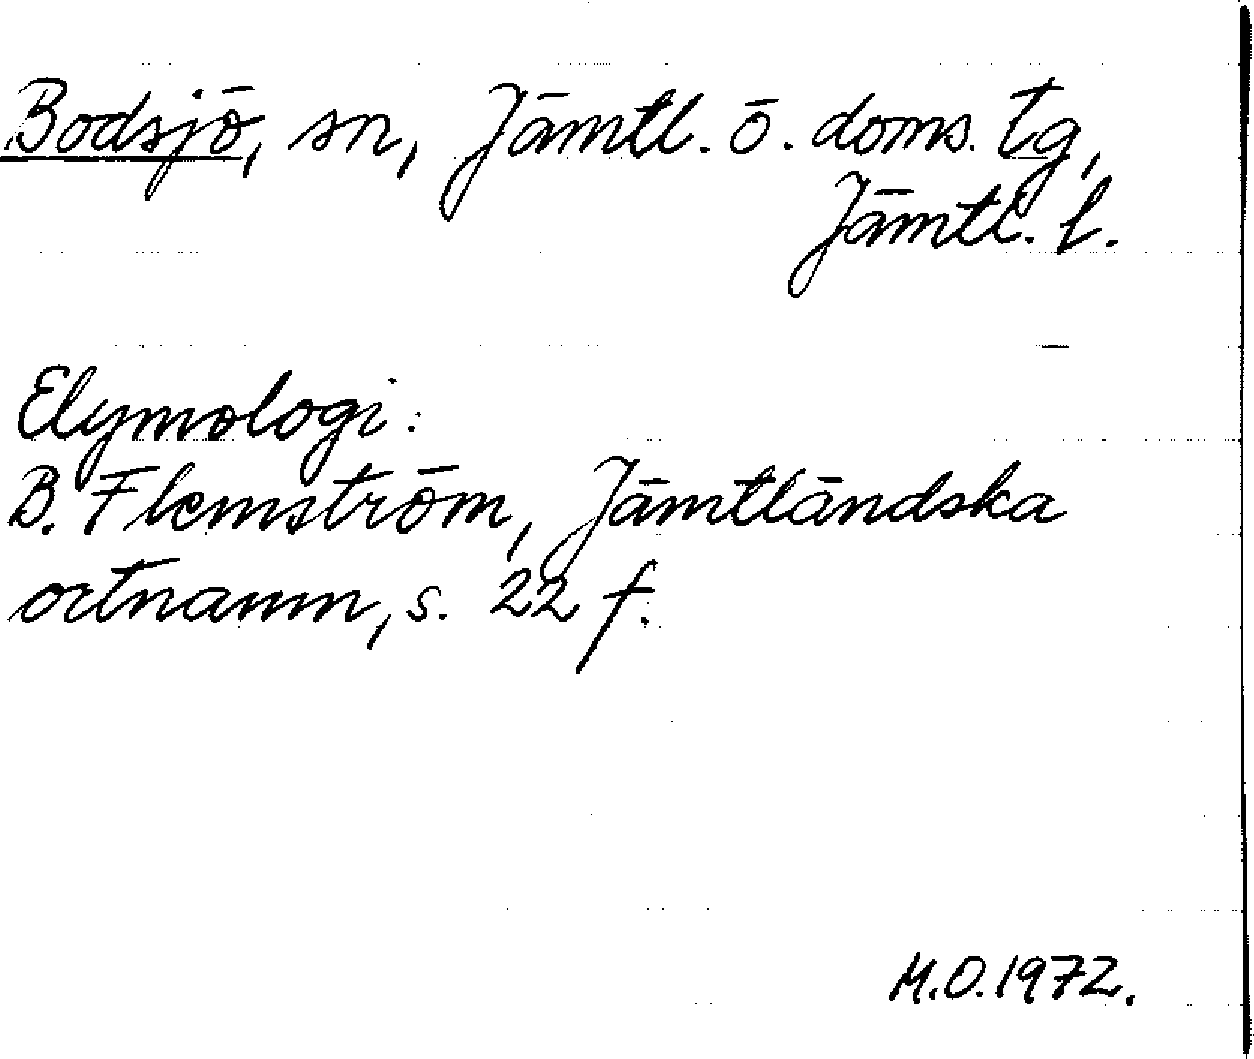 Bodsjö, sn, Jämtl. ö. doms. tg,
Jämtl. l.
Etymologi:
B. Flemström, Jämtländska
ortnamn, s. 22 f.
M.O. 1972.